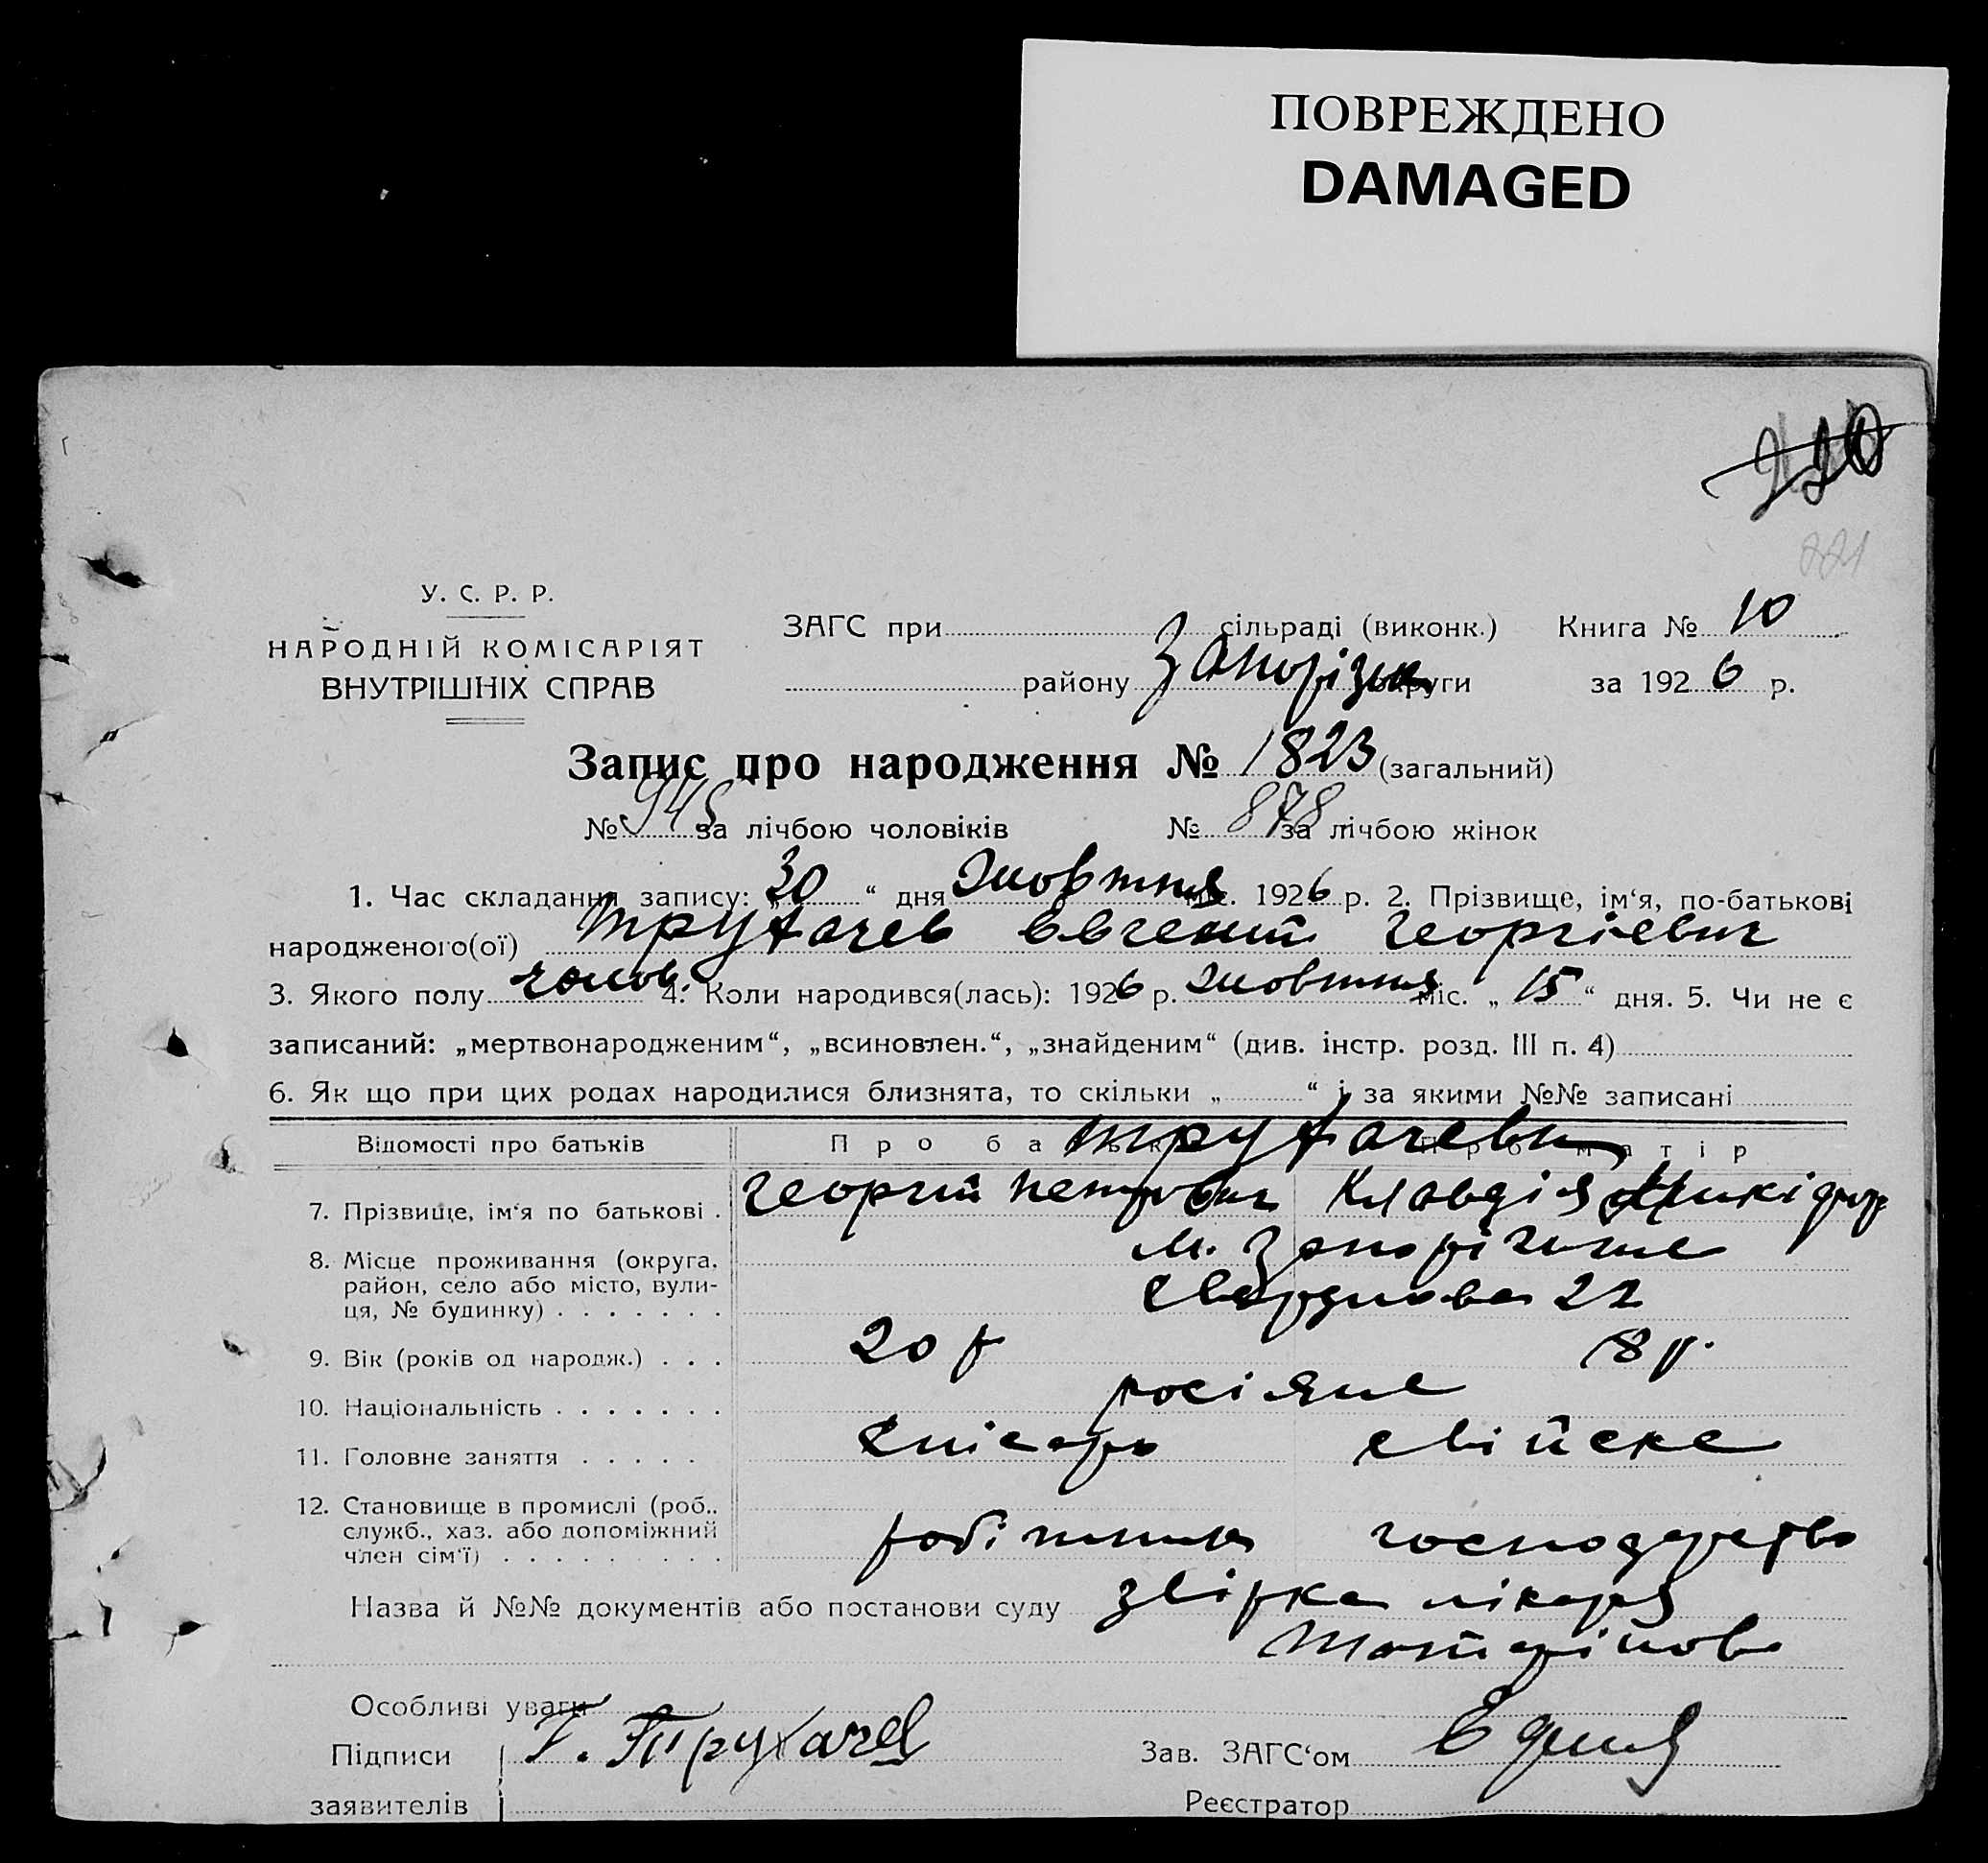 ПОВРЕЖДЕНО
DAMAGED
220
221
У. С. Р. Р.
НАРОДНІЙ КОМІСАРІЯТ
ВНУТРІШНІХ СПРАВ
ЗАГС при сільраді (виконк.) Книга № 10
району Запорізька округи за 1926 р.
Запис про народження № 1823 (загальний)
№ 945 за лічбою чоловіків № 878 за лічбою жінок
1. Час складання запису: „30“ дня жовтня міс. 1926 р. 2. Прізвище, ім‘я, по-батькові
народженого(ої) Трухачев Евгений Георгіевич
3. Якого полу чолов. 4. Коли народився(лась): 1926 р. жовтня міс. „15“ дня. 5. Чи не є
записаний: „мертвонародженим“, „всиновлен.“, „знайденим“ (див. інстр. розд. III п. 4)
6. Як що при цих родах народилися близнята, то скільки „ “ і за якими №№ записані
Відомості про батьків Про батька Про матір
Трухачеви
7. Прізвище, ім‘я по батькові . Георгий Петрович Клавдія Никіфор
8. Місце проживання (округа, район, село або місто, вули-ця, № будинку) . . . . . . . м. Запоріжже
Свердлова 22
9. Вік (років од народж.) . . . 20 р 18 р.
10. Національність . . . . . . . росіяне
11. Головне заняття . . . . . слісарь свійске
12. Становище в промислі (роб., служб., хаз. або допоміжний член сім‘ї) . . . . . . . . . робітник господарство
Назва й №№ документів або постанови суду звірка лікаря
Особливі уваги
Підписи Г. Трухачев Зав. ЗАГС‘ом
заявителів Реєстратор